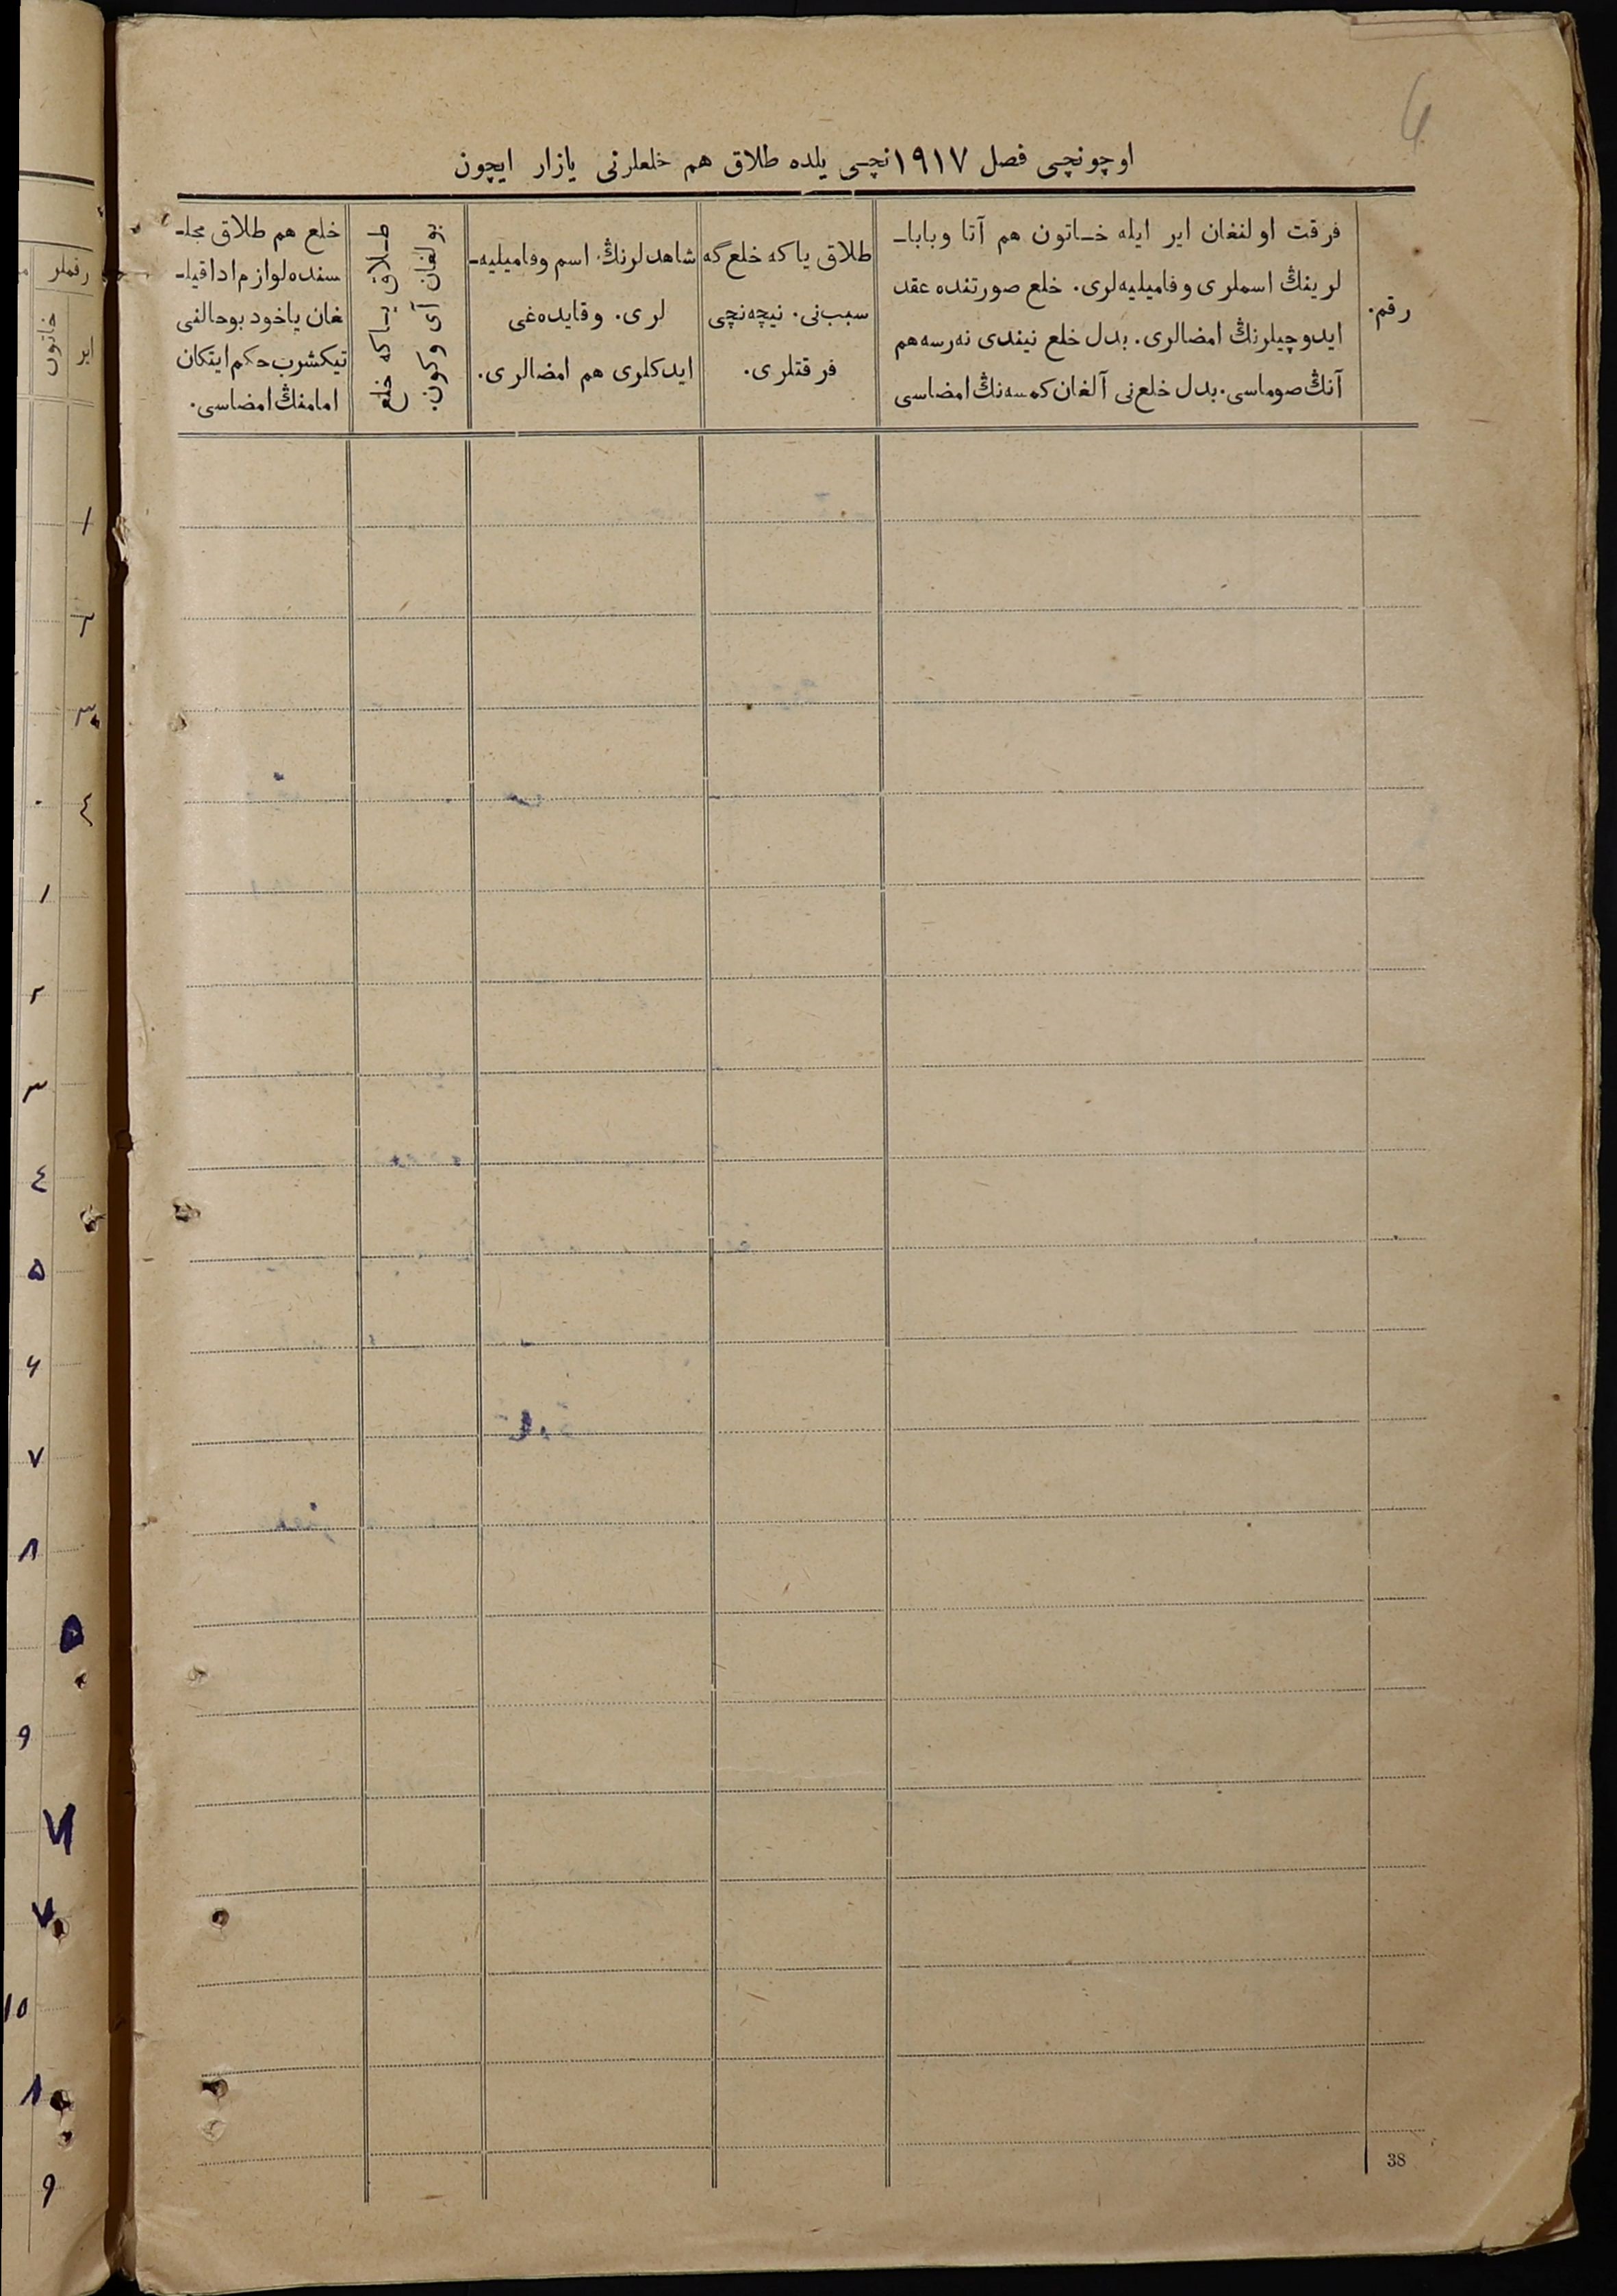 6
اوچونچی فصل ۱۹۱۷نچی یلده طلاق هم خلعلرنی یازار ایچون
رقم.
فرقت اولنغان ایر ایله خاتون هم آتا وبابا-
لرینڭ اسملری وفامیلیه‌لری. خلع صورتنده عقد
ایدوچیلرنڭ امضالری. بدل خلع نیندی نه‌رسه هم
آنڭ صوماسی. بدل خلع‌نی آلغان کمسه‌نڭ امضاسی
طلاق یا که خلع گه
سبب‌نی. نیچه‌نچی
فرقتلری.
شاهدلرنڭ اسم وفامیلیه-
لری. وقایده‌غی
ایدکلری هم امضالری.
طلاق یا که خلع
بولغان آی وکون.
خلع هم طلاق مجلـ
سنده لوازم ادا قیلـ
غان یاخود بوحالنی
تیکشرب حکم ایتکان
امامنڭ امضاسی.
38
رقملر
ایر
خاتون
۱
۲
۳
٤
۱
۲
۳
٤
۵
۶
۷
۸
۵
۹
۷
۱۰
۸
۹